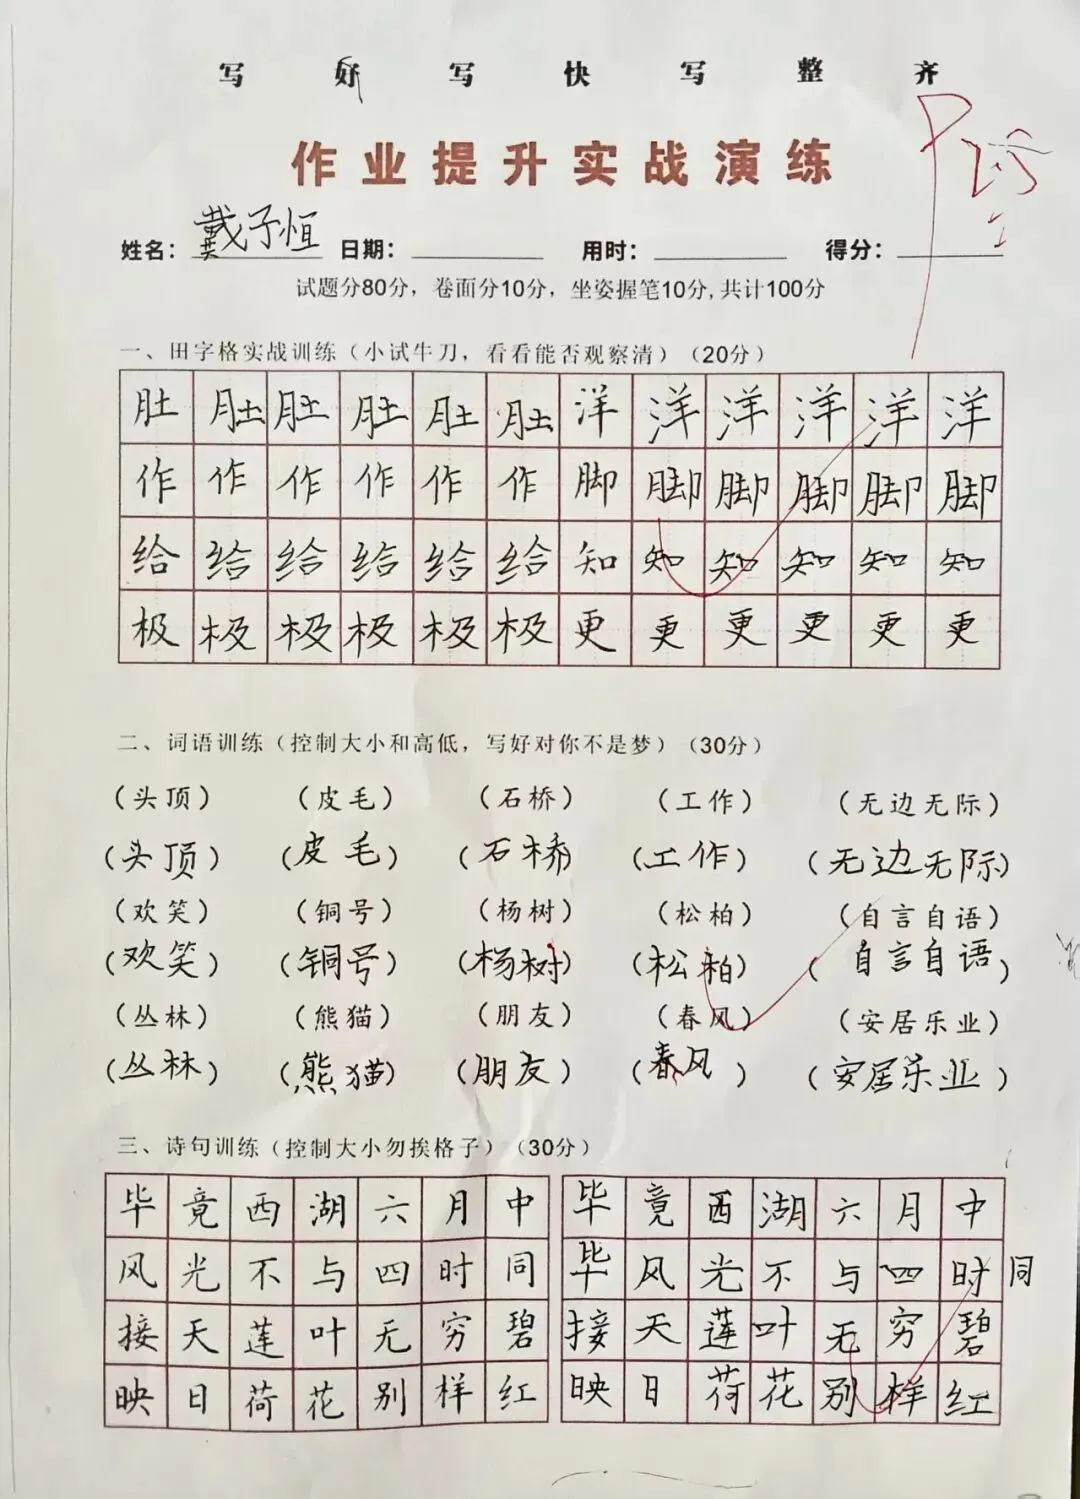 写好写快写整齐
作业提升实战演练
姓名：戴子恒 日期： 用时： 得分：
试题分80分，卷面分10分，坐姿握笔10分,共计100分
一、田字格实战训练（小试牛刀，看看能否观察清）（20分）
肚肚肚肚肚肚洋洋洋洋洋洋
作作作作作作脚脚脚脚脚脚
给给给给给给知知知知知知
极极极极极极更更更更更更
二、词语训练（控制大小和高低，写好对你不是梦）（30分）
（头顶）（皮毛）（石桥）（工作）（无边无际）
（头顶）（皮毛）（石桥）（工作）（无边无际）
（欢笑）（铜号）（杨树）（松柏）（自言自语）
（欢笑）（铜号）（杨树）（松柏）（自言自语）
（丛林）（熊猫）（朋友）（春风）（安居乐业）
（丛林）（熊猫）（朋友）（春风）（安居乐业）
三、诗句训练（控制大小勿挨格子）（30分）
毕竟西湖六月中 毕竟西湖六月中
风光不与四时同 毕风光不与四时同
接天莲叶无穷碧 接天莲叶无穷碧
映日荷花别样红 映日荷花别样红